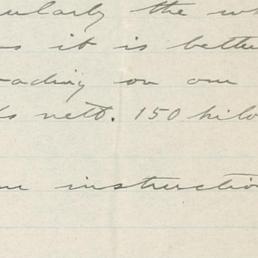 ularly the wh
s it is better
oading on one
ds nett. 150 kilo
instructio